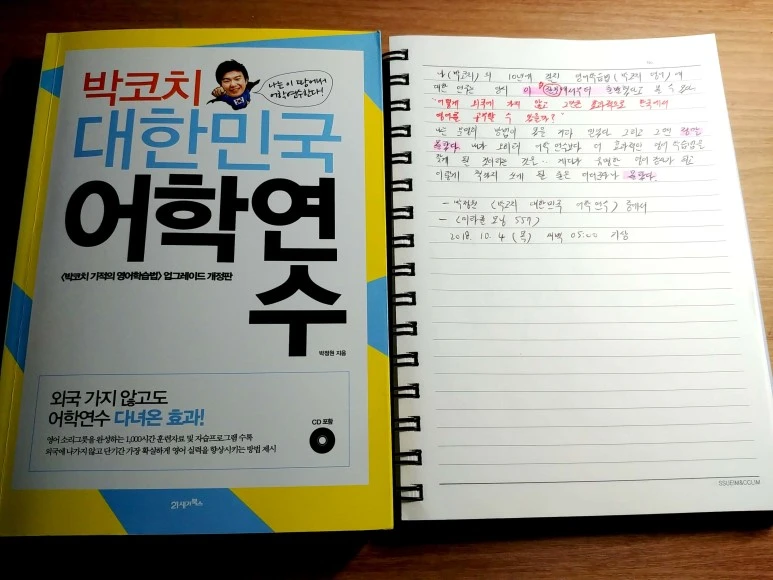 박코치
나는 이 땅에서
어학연수한다!
대한민국
어학연
수
<박코치 기적의 영어학습법> 업그레이드 개정판
박정원 지음
외국 가지 않고도
어학연수 다녀온 효과!
CD 포함
영어 소리그릇을 완성하는 1,000시간 훈련자료 및 자습프로그램 수록
외국에 나가지 않고 단기간 가장 확실하게 영어 실력을 향상시키는 방법 제시
21세기북스
나(박코치)의 10년에 걸친 영어학습법(박코치 영어)에
대한 연구는 이 에서부터 출발했다고 볼 수 있다.
"어떻게 외국에 가지 않고 그만큼 효과적으로 한국에서
영어를 공부할 수 있을까?"
나는 분명히 방법이 있을 거라 믿었다. 그리고
몰랐다. 내가 오히려 어학연수보다 더 효과적인 영어 학습법을
찾게 될 것이라는 것을... 게다가 유명한 영어 강사가 되고
이렇게 책까지 쓰게 될 줄은 더더군다나 몰랐다.
- 박정원 <박코치 대한민국 어학연수> 중에서
- <미라클 모닝 557>
2018. 10. 4 (목) 새벽 05:00 기상
SSUEIM&CCLIM